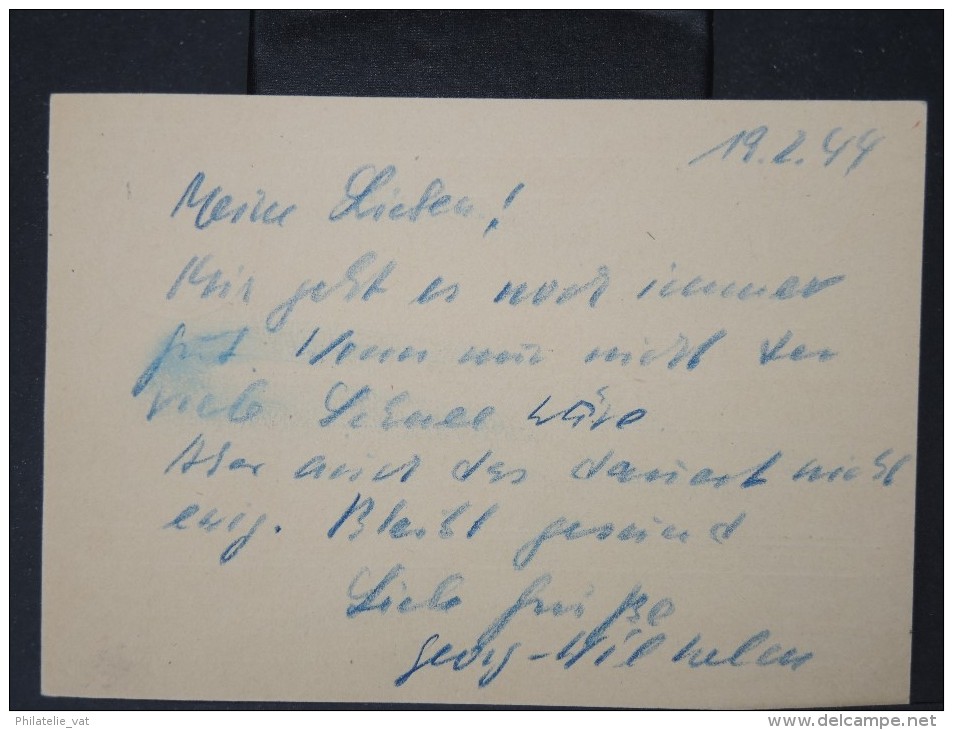 19.2.44
Meine Lieben!
Mir geht es noch immer
gut. Wenn nur nicht der
viele Schnee wäre
Aber auch das dauert nicht
ewig. Bleibt gesund
Liebe Grüße
Georg-Wilhelm
Philatelie_vat
www.delcampe.net